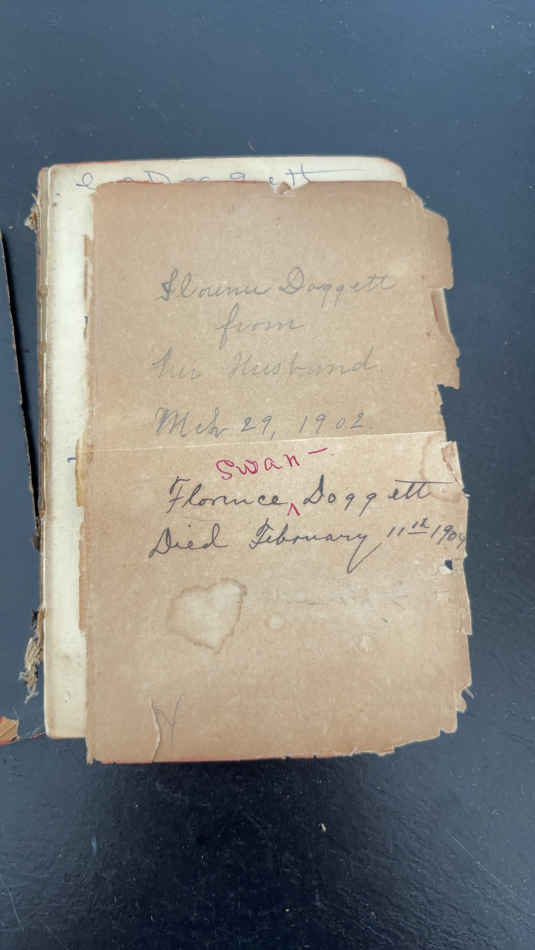 Doggett
Florence Doggett
from
her Husband
Mch 29, 1902
Swan-
Florence ^ Doggett
Died February 11th